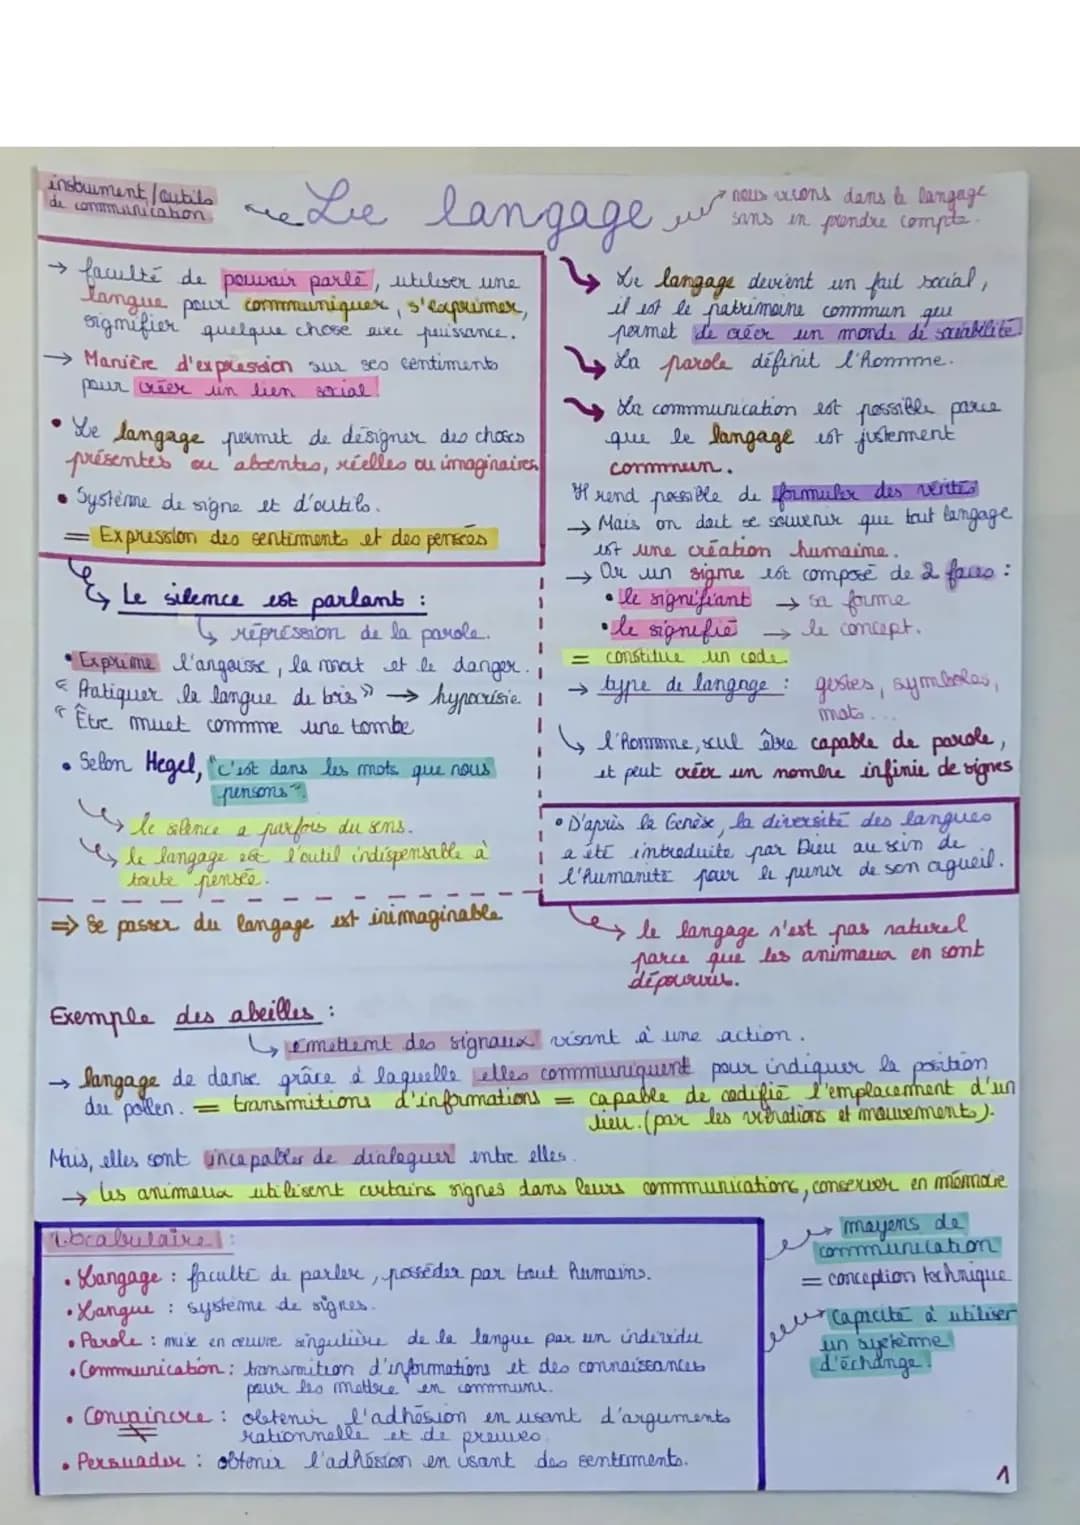 instrument/outils
de communication
Le langage
nous vivons dans le langage
sans en prendre compte.
→ faculté de pouvoir parlé, utiliser une
langue pour communiquer, s'exprimer,
signifier quelque chose avec puissance.
→ Manière d'expression sur ses sentiments
pour créer un lien social!
• Le langage permet de désigner des choses
présentes ou absentes, réelles ou imaginaires.
• Système de signe et d'outils.
= Expression des sentiments et des pensées
↳ Le silence est parlant :
↳ répression de la parole.
• Exprime l'angoisse, la mort et le danger.
" Pratiquer la langue de bois" → hypocrisie.
" Être muet comme une tombe
• Selon Hegel, "c'est dans les mots que nous
pensons".
↳ le silence a parfois du sens.
↳ le langage est l'outil indispensable à
toute pensée.
⇒ Se passer du langage est inimaginable
↳ Le langage devient un fait social,
il est le patrimoine commun qui
permet de créer un monde de sociabilité
↳ La parole définit l'homme.
→ La communication est possible parce
que le langage est justement
commun.
Il rend possible de formuler des vérités
→ Mais on doit se souvenir que tout langage
est une création humaine.
→ Or un signe est composé de 2 faces :
• le signifiant → sa forme
• le signifié → le concept.
= constitue un code.
→ type de langage : gestes, symboles,
mots...
↳ l'Homme, seul être capable de parole,
et peut créer un nombre infinie de signes
• D'après la Genèse, la diversité des langues
a été introduite par Dieu au sein de
l'humanité pour le punir de son orgueil.
↳ le langage n'est pas naturel
parce que les animaux en sont
dépourvus.
Exemple des abeilles :
↳ émettent des signaux visant à une action.
→ langage de danse grâce à laquelle elles communiquent pour indiquer la position
du pollen. = transmitions d'informations = capable de codifié l'emplacement d'un
lieu. (par les vibrations et mouvements).
Mais, elles sont incapables de dialoguer entre elles.
→ les animaux utilisent certains signes dans leurs communications, conserver en mémoire
Vocabulaire :
• Langage : faculté de parler, posséder par tout humains.
• Langue : système de signes.
• Parole : mise en œuvre singulière de la langue par un individu
• Communication : transmition d'informations et des connaissances
pour les mettre en commun.
• Convaincre : obtenir l'adhésion en usant d'arguments
rationnelle et de preuves.
• Persuader : obtenir l'adhésion en usant des sentiments.
→ moyens de
communication
= conception technique
→ Capacité à utiliser
un système
d'échange.
1